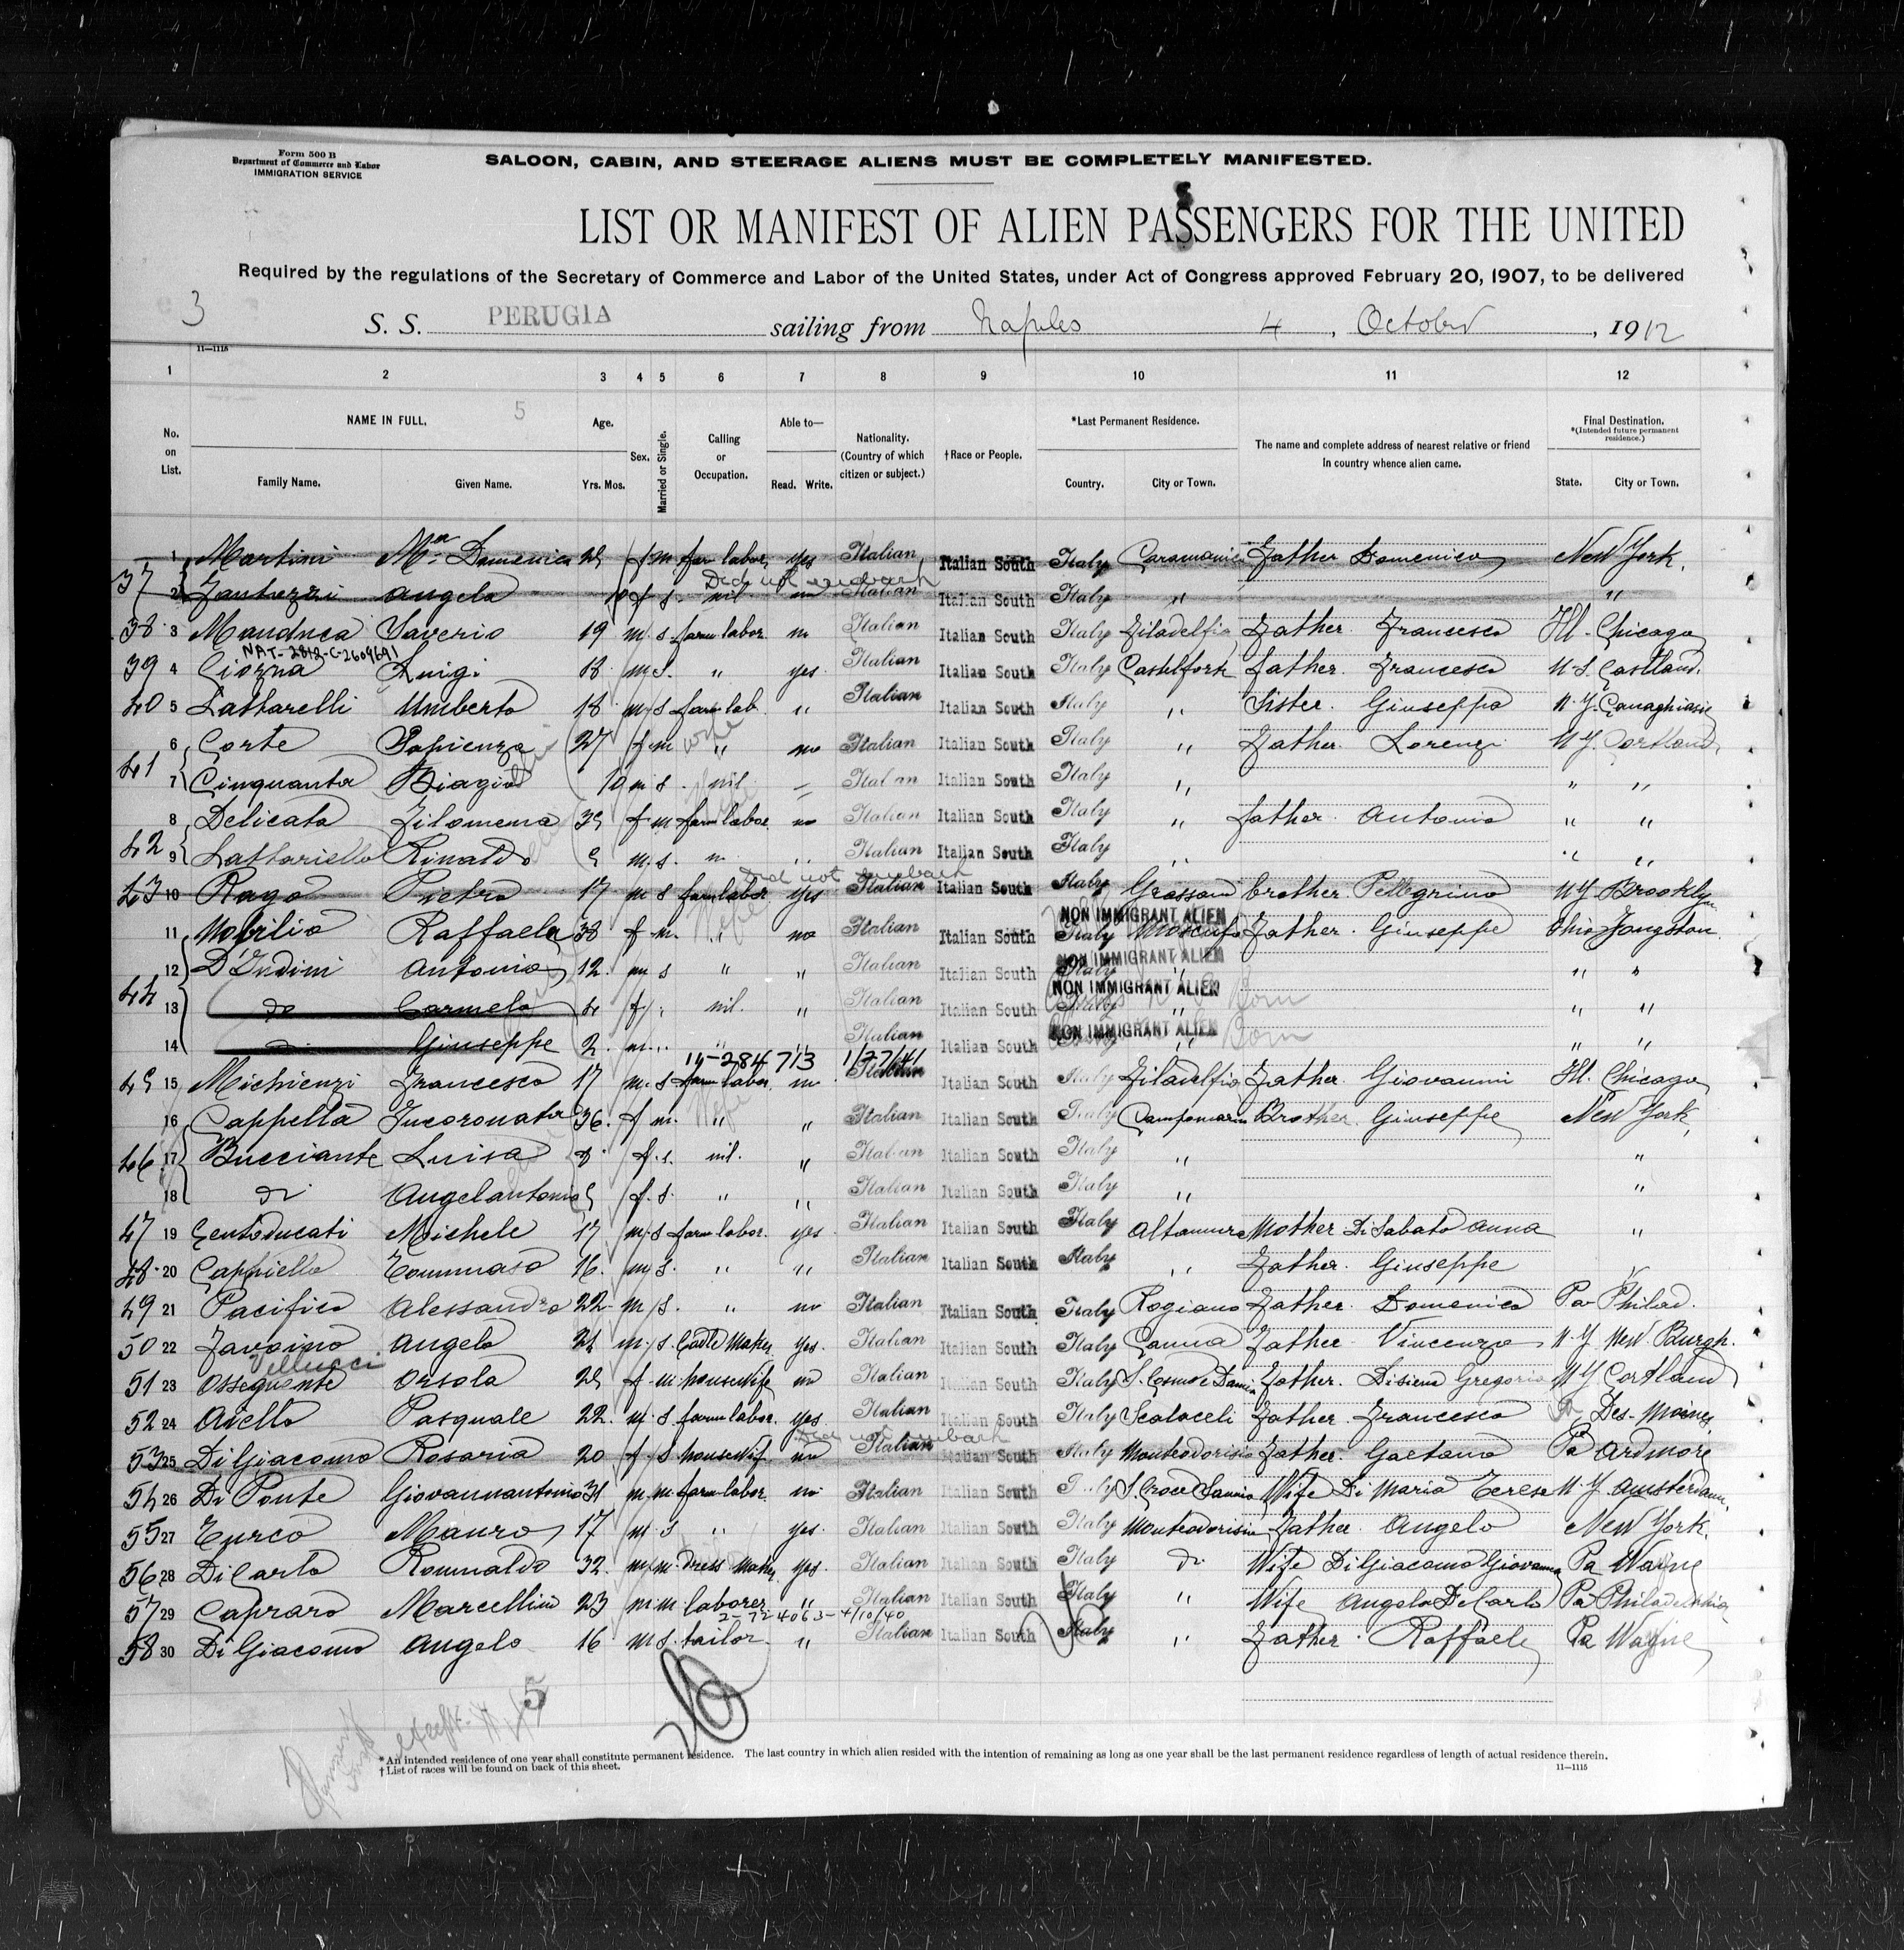 Form 500 B
Department of Commerce and Labor
IMMIGRATION SERVICE
SALOON, CABIN, AND STEERAGE ALIENS MUST BE COMPLETELY MANIFESTED.
LIST OR MANIFEST OF ALIEN PASSENGERS FOR THE UNITED
Required by the regulations of the Secretary of Commerce and Labor of the United States, under Act of Congress approved February 20, 1907, to be delivered
3
S. S. PERUGIA sailing from Naples 4, October, 1912
11—1115
1 2 3 4 5 6 7 8 9 10 11 12
No. on List. NAME IN FULL. 5 Family Name. Given Name. Age. Yrs. Mos. Sex. Married or Single. Calling or Occupation. Able to— Read. Write. Nationality. (Country of which citizen or subject.) †Race or People. *Last Permanent Residence. Country. City or Town. The name and complete address of nearest relative or friend in country whence alien came. Final Destination. *(Intended future permanent residence.) State. City or Town.
37 1 Martini Ma Domenica f m farm labor yes Italian Italian South Italy Father Domenico New York.
Did not embark
2 Fantozzi Angela f s nil Italian Italian South Italy " "
38 3 Manduca Saverio 19 m s farm labor Italian Italian South Italy Filadelfia Father Francesco Ill. Chicago
NAT-2812-C-2609691
39 4 Luigi 18 m s " yes Italian Italian South Italy Father Francesco
40 5 Lattarelli Umberto 18 m s farm lab. " Italian Italian South Italy " Sister Giuseppa N.Y.
41 6 Corte Sapienza 27 f m " no Italian Italian South Italy " Father Lorenzo N.Y. Cortland
7 Cinquanta Biagio 10 m s nil Italian Italian South Italy " " "
42 8 Delicata Filomena f m farm labor no Italian Italian South Italy " father Antonio " "
9 Lattariello Rinaldo m s Italian Italian South Italy " " "
Did not embark
43 10 Rago Pietro 17 m s farm labor yes Italian Italian South Italy brother Pellegrino N.Y. Brooklyn
NON IMMIGRANT ALIEN
44 11 Mobilio Raffaela 38 f m " no Italian Italian South Italy Moscufo Father Giuseppe Ohio Jongston
NON IMMIGRANT ALIEN
12 Antonio 12 m s " " Italian Italian South Italy " " "
NON IMMIGRANT ALIEN
13 do Carmela 4 f " nil. " Italian Italian South Italy " Born " "
NON IMMIGRANT ALIEN
14 do Giuseppe 2 m " " " Italian Italian South " Born " "
14-284713 1/27/41
45 15 Michienzi Francesco 17 m s farm labor no Italian Italian South Italy Filadelfia Father Giovanni Ill. Chicago
46 16 Cappella Incoronata 36 f m " " Italian Italian South Italy Campomarino Brother Giuseppe New York
17 Bucciante Luisa 8 f s nil. " Italian Italian South Italy " "
18 do Angelantonia f s " " Italian Italian South Italy " "
47 19 Centoducati Michele 17 m s farm labor. yes Italian Italian South Italy Altamura Mother Di Sabato Anna "
48 20 Cappiello Tommaso 16 m s " " Italian Italian South Italy " Father Giuseppe
49 21 Pacifico Alessandro 22 m s " no Italian Italian South Italy Rogiano Father Domenico Pa Philad.
50 22 Favoino Angelo m s yes Italian Italian South Italy Canna Father Vincenzo N.Y. New Burgh.
Vellucci
51 23 Ossequente Orsola f m housewife no Italian Italian South Italy S. Cosmo e Damian Father Gregorio N.Y. Cortland
52 24 Aiello Pasquale 22 m s farm labor. yes Italian Italian South Italy Father Francesco Des-Moines
Did not embark
53 25 Di Giacomo Rosaria 20 f s housewif no Italian Italian South Italy Monteodorisio Father Gaetano Pa Ardmore
54 26 Di Ponte Giovannantonio 31 m m farm labor. no Italian Italian South Italy S. Croce Sannio Wife Di Maria Terese N.Y. Amsterdam
55 27 Turco Mauro 17 m s " yes Italian Italian South Italy Monteodorisio Father Angelo New York.
56 28 Di Carlo Romualdo 32 m m dress maker yes. Italian Italian South Italy do Wife Di Giacomo Giovanna Pa Wayne
57 29 Capraro Marcellino 23 m m laborer " Italian Italian South Italy " Wife Angela De Carlo Pa Philadelphia
2-724063-4/10/40
58 30 Di Giacomo Angelo 16 m s tailor " Italian Italian South Italy " Father Raffaele Pa Wayne
5
*An intended residence of one year shall constitute permanent residence. The last country in which alien resided with the intention of remaining as long as one year shall be the last permanent residence regardless of length of actual residence therein.
†List of races will be found on back of this sheet.
11—1115